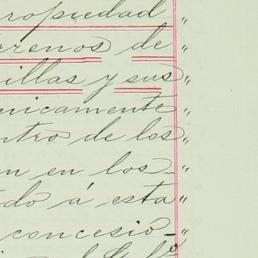 ropiedad "
rrenos de "
illas y sus "
nicamente "
ntro de los "
n en los "
do á esta "
concesio- "